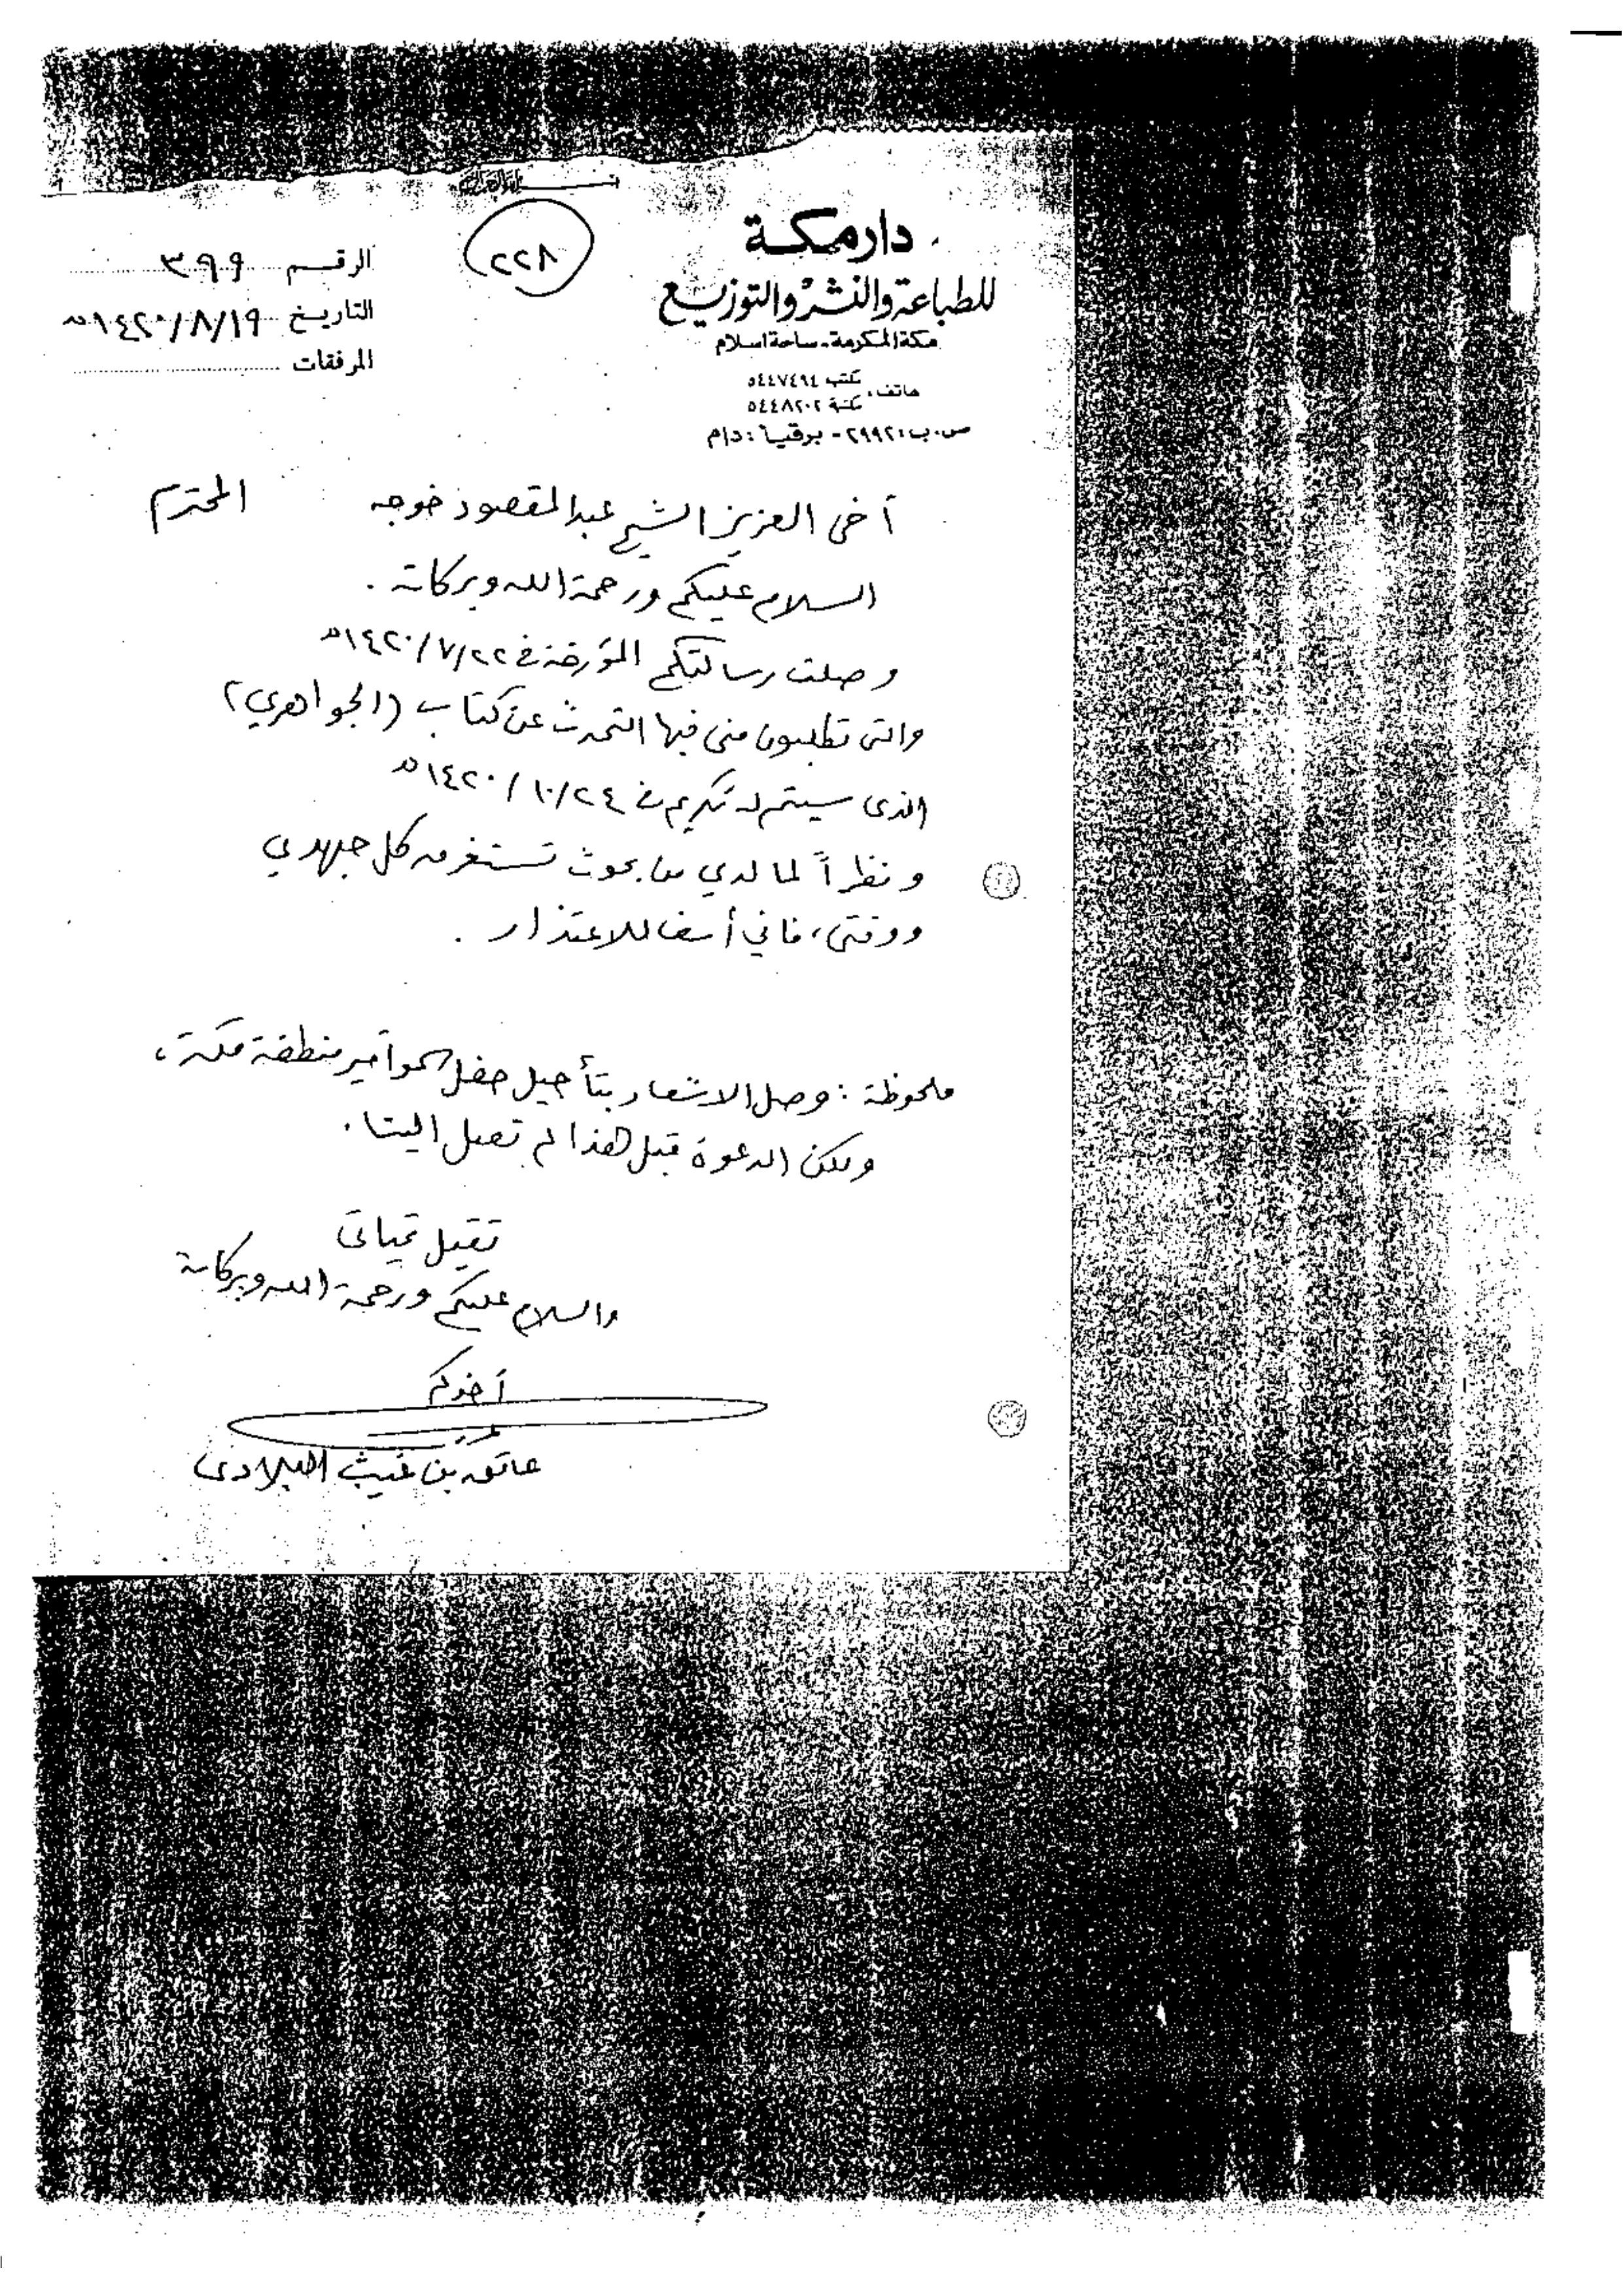 دار مكة
للطباعة والنشر والتوزيع
مكة المكرمة - ساحة اسلام
هاتف: مكتب ٥٤٤٧٤٩٤
مكتبة ٥٤٤٨٢٠٢
ص.ب: ٢٩٩٢ - برقياً: دام
٢٢٨
الرقم ٣٩٩
التاريخ ١٤٢٠/٨/١٩هـ
المرفقات
أخي العزيز الشيخ عبدالمقصود خوجه المحترم
السلام عليكم ورحمة الله وبركاته .
وصلت رسالتكم المؤرخة في ١٤٢٠/٧/٢٢هـ
والتي تطلبون مني فيها التحدث عن كتاب (الجواهري)
الذي سيتم له تكريم في ١٤٢٠/١٠/٢٤هـ
ونظراً لما لدي من بحوث تستغرق كل جهدي
ووقتي، فاني أسف للاعتذار .
ملحوظة : وصل الاشعار بتأجيل حفل سمو أمير منطقة مكة ،
ولكن الدعوة قبل هذا لم تصل الينا .
تقبل تحياتي
والسلام عليكم ورحمة الله وبركاته
أخوكم
عاتق بن غيث البلادي